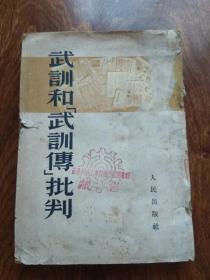 武訓和「武訓傳」批判
人民出版社